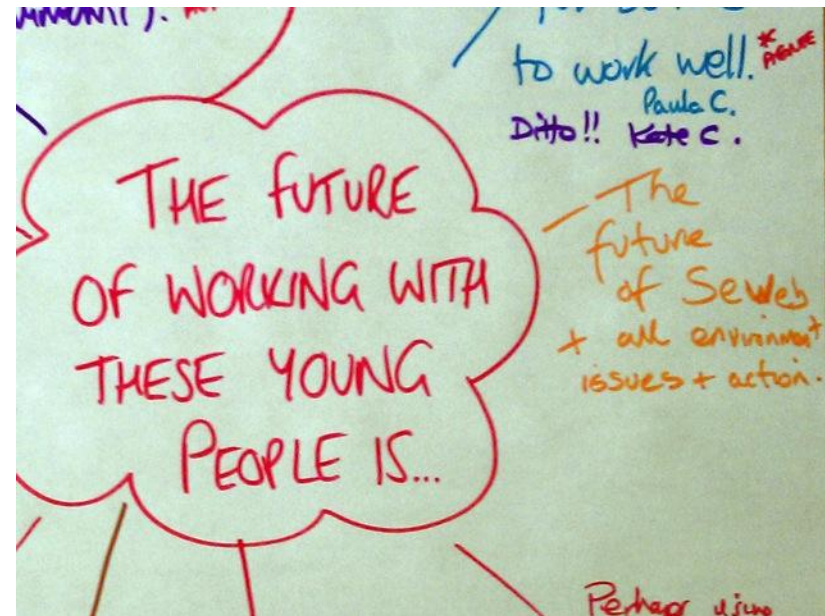 to work well.
* AGREE
Paula C.
Ditto!! Kate C.
THE FUTURE
OF WORKING WITH
THESE YOUNG
PEOPLE IS...
The
future
of SeWeb
+ all environmt
issues + action.
Perhaps using